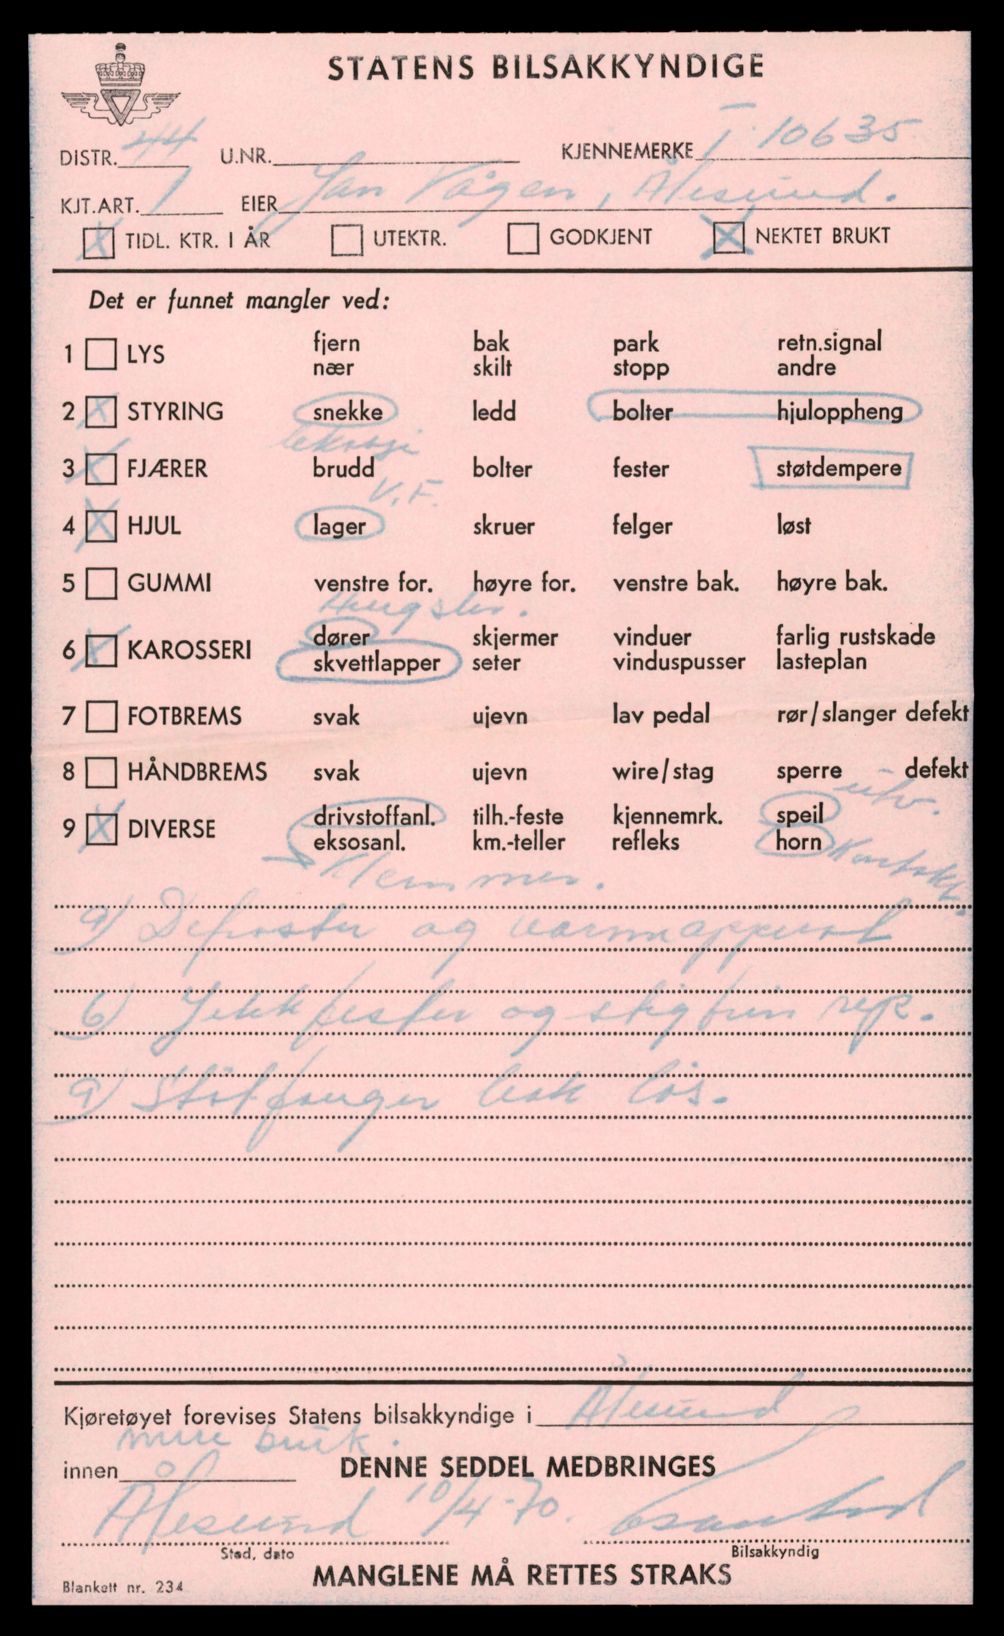 STATENS BILSAKKYNDIGE
DISTR. 44 U.NR. KJENNEMERKE T-10635
KJT.ART. 1 EIER Jan Vågen, Ålesund.
X TIDL. KTR. I ÅR UTEKTR. GODKJENT X NEKTET BRUKT
Det er funnet mangler ved:
1 LYS fjern bak park retn.signal
nær skilt stopp andre
2 X STYRING snekke ledd bolter hjuloppheng
3 X FJÆRER brudd bolter fester støtdempere
V.F.
4 X HJUL lager skruer felger løst
5 GUMMI venstre for. høyre for. venstre bak. høyre bak.
Hengsler.
6 X KAROSSERI dører skjermer vinduer farlig rustskade
skvettlapper seter vinduspusser lasteplan
7 FOTBREMS svak ujevn lav pedal rør/slanger defekt
8 HÅNDBREMS svak ujevn wire/stag sperre defekt
utv.
9 X DIVERSE drivstoffanl. tilh.-feste kjennemrk. speil
eksosanl. km.-teller refleks horn Kontakt.
Klemmer.
9) Defroster og varmapparat
6) Jekkfester og stigtrin rep.
9) Støtfanger bak løs.
Kjøretøyet forevises Statens bilsakkyndige i Ålesund
innen bruk. DENNE SEDDEL MEDBRINGES
Ålesund 10/4-70.
Sted, dato Bilsakkyndig
Blankett nr. 234 MANGLENE MÅ RETTES STRAKS